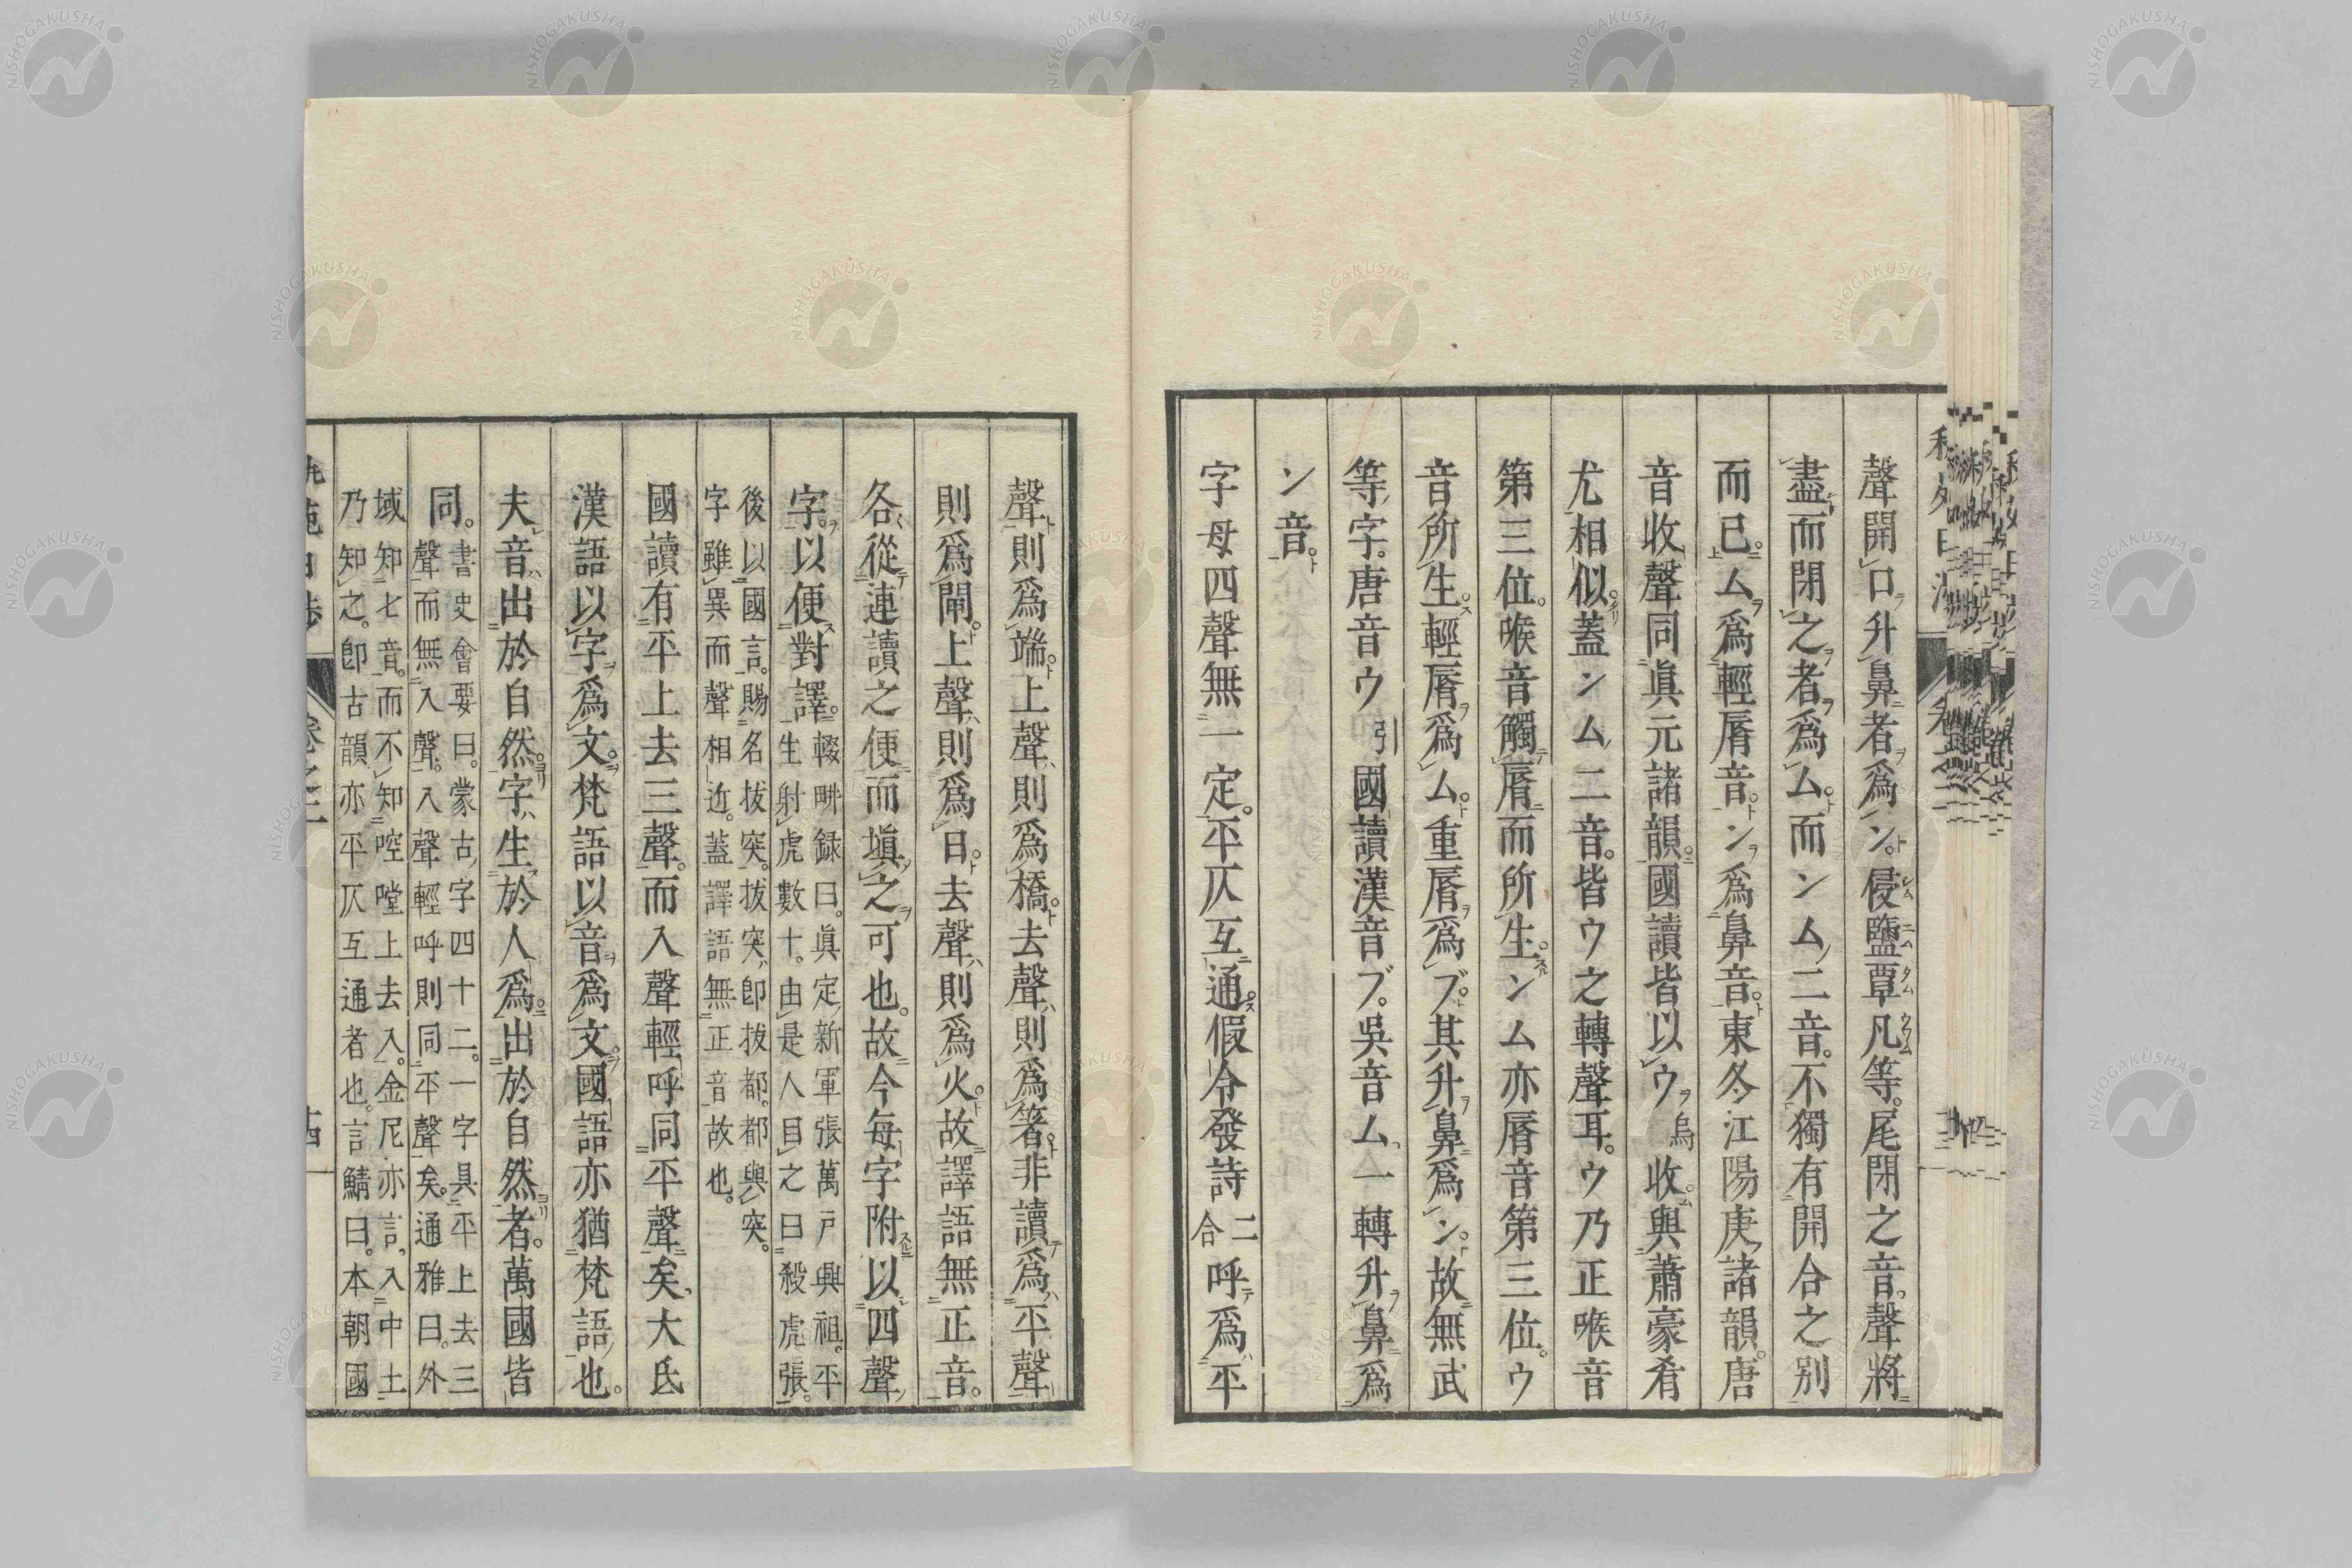 聲開口升鼻者爲ン。侵鹽覃凡等。尾閉之音。聲將
盡而閉之者爲ム。而ンム二音。不獨有開合之別
而已。ム爲輕脣音。ン爲鼻音。東冬江陽庚諸韻。唐
音收聲同眞元諸韻。國讀皆以ウ烏收。與蕭豪肴
尤相似。蓋ンム二音。皆ウ之轉聲耳。ウ乃正喉音
第三位。喉音觸脣而所生。ンム亦脣音第三位。ウ
音所生。輕脣爲ム。重脣爲ブ。其升鼻爲ン。故無武
等字。唐音ウ引國讀漢音ブ。吳音ム。一轉升鼻爲
ン音。
字母四聲無一定。平仄互通。假令發詩二合呼爲平
聲則爲端。上聲則爲橋。去聲則爲箸。非讀爲平聲
則爲閘。上聲則爲日。去聲則爲火。故譯語無正音。
各從連讀之便而塡之可也。故今每字附以四聲
字。以便對譯。輟畊録曰。眞定新軍張萬戸興祖。平
生射虎數十。由是人目之曰殺虎張。
後以國言。賜名拔突。拔突卽拔都。都與突。
字雖異而聲相近。蓋譯語無正音故也。
國讀有平上去三聲。而入聲輕呼同平聲矣。大氐
漢語以字爲文。梵語以音爲文。國語亦猶梵語也。
夫音出於自然。字生於人爲。出於自然者。萬國皆
同。書史會要曰。蒙古字四十二。一字具平上去三
聲而無入聲。入聲輕呼則同平聲矣。通雅曰。外
域知七音。而不知啌嘡上去入。金尼亦言。入中土
乃知之。卽古韻亦平仄互通者也。言鯖曰。本朝國
NISHOGAKUSHA